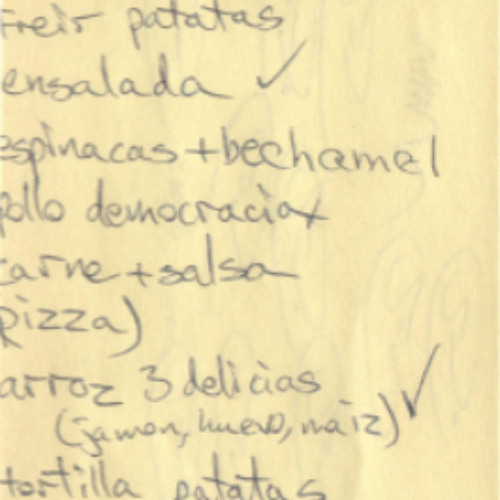 freir patatas
ensalada ✓
espinacas + bechamel
pollo democracia x
carne + salsa
pizza)
arroz 3 delicias ✓
(jamon, huevo, maiz)
tortilla patatas